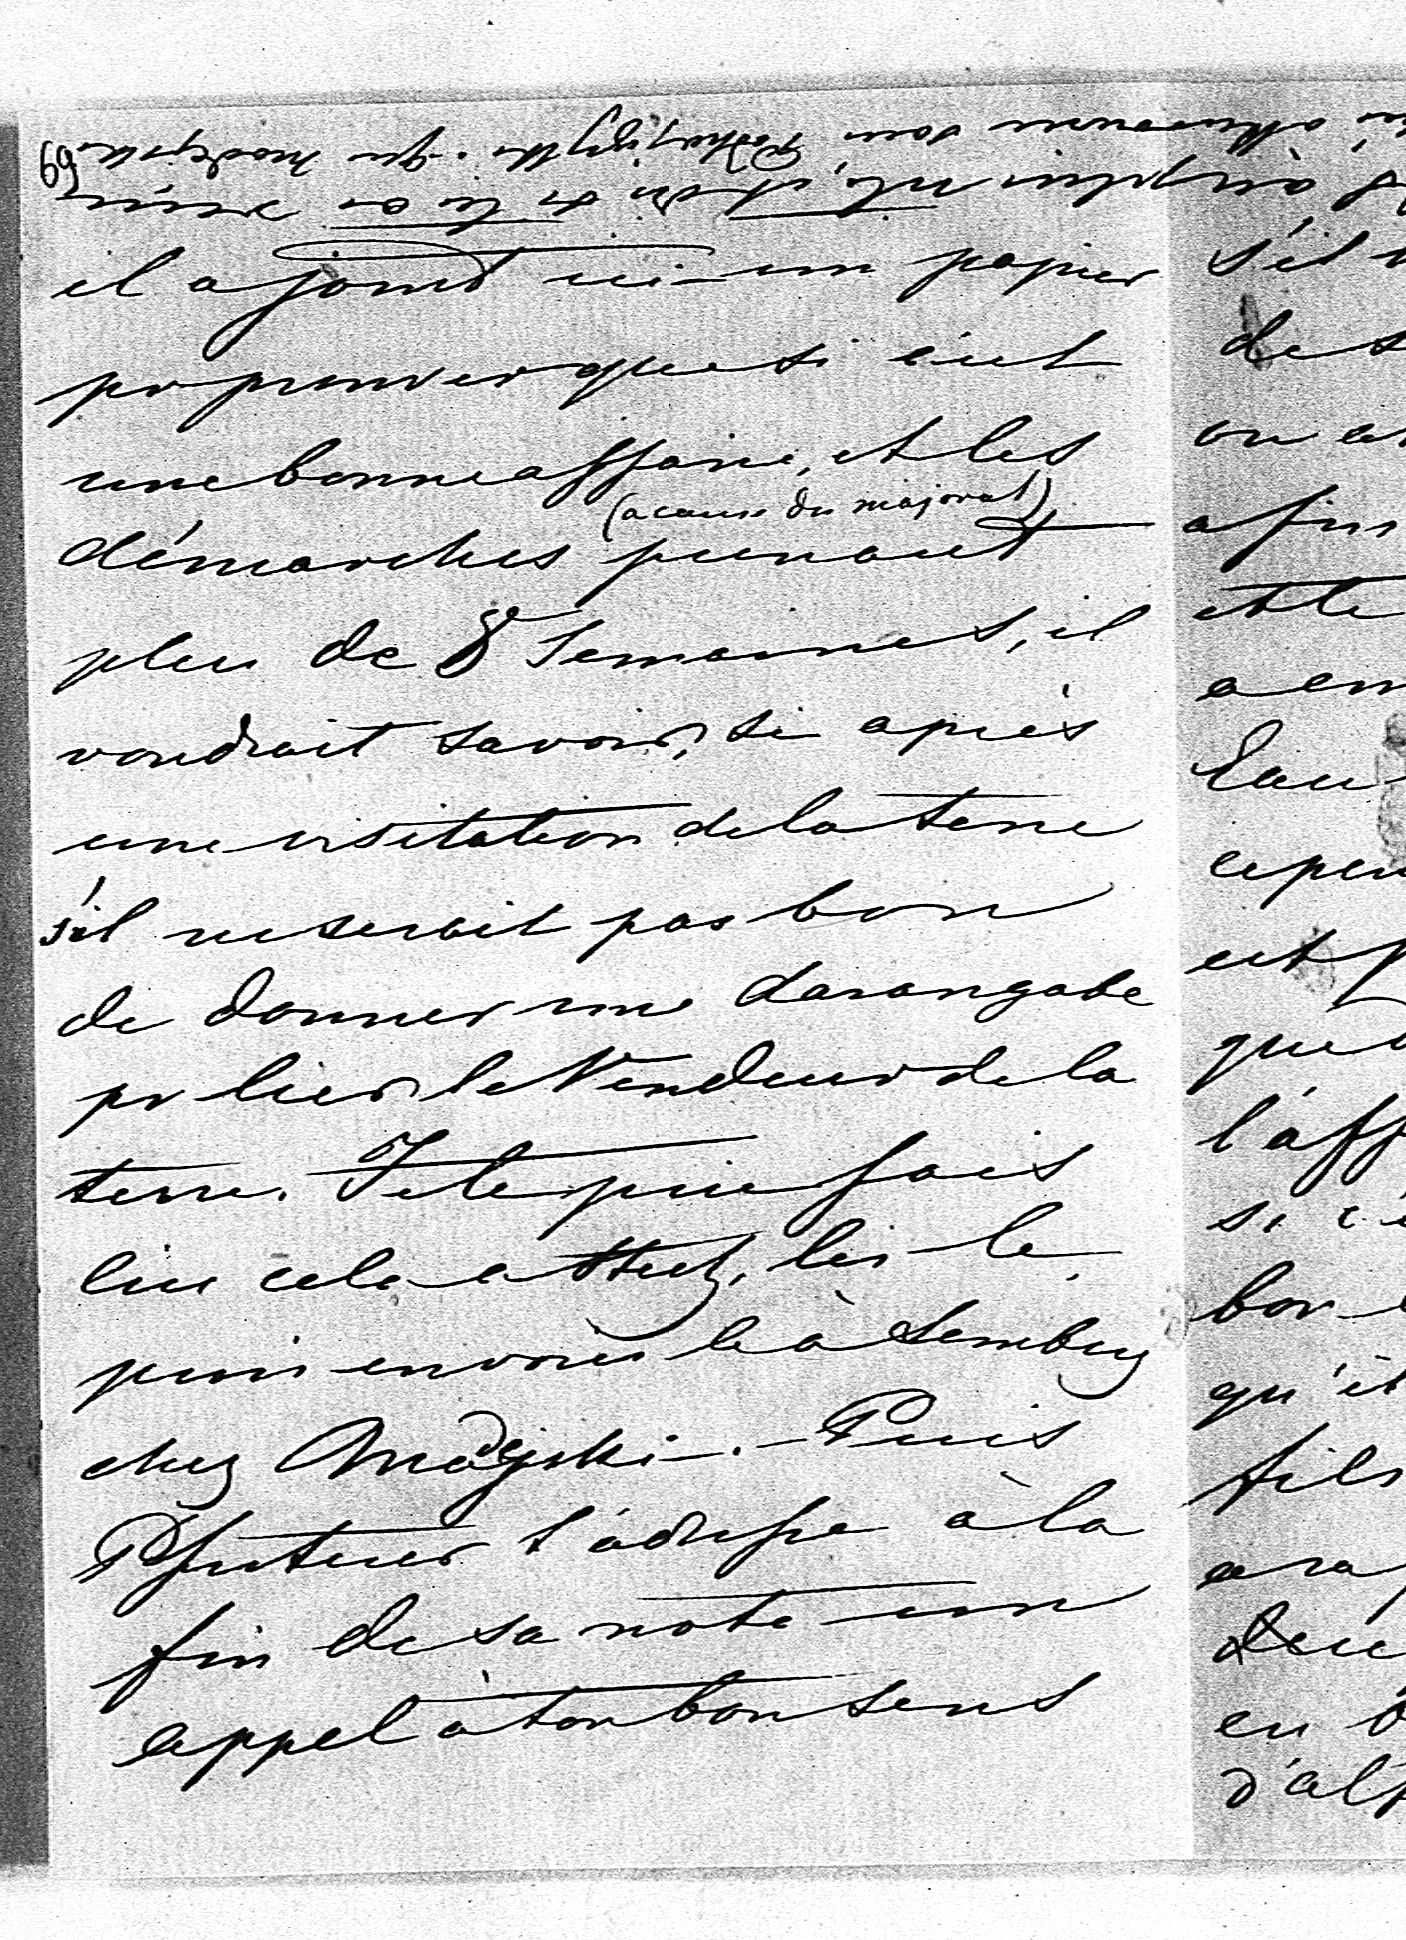 69
il a joint ici un papier
pr prouver que si c'est
une bonne affaire, et les
(a cause du majorat)
démarches prenant
plus de 8 semaines, il
voudrait savoir, si après
une visitation de la terre
s'il ne serait pas bon
de donner une darangabe
pr lier le Vendeur de la
terre. Je te prie fais
lire cela a lis-le
puis envoie le à Lemberg
chez Madejski. - Puis
s'adresse à la
fin de sa note un
appel à ton bon sens
s'il
de s
on
afin
et le
a em
l'au
cepen
est p
que
l'aff
si c'é
bon
qu'il
fils
a ra
en
d'al